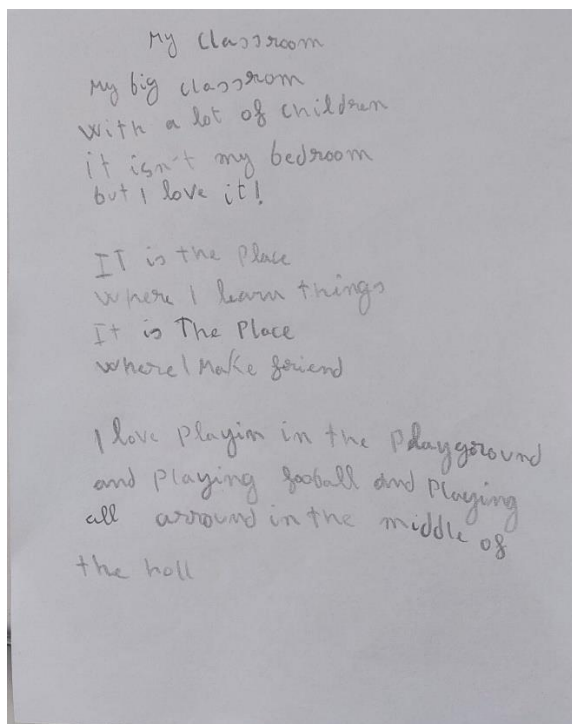 My classroom
My big classrom
with a lot of children
it isn't my bedroom
but I love it!
IT is the Place
where I learn things
It is The Place
where I make friend
I love playim in the playground
and playing fooball and playing
all arround in the middle of
the holl